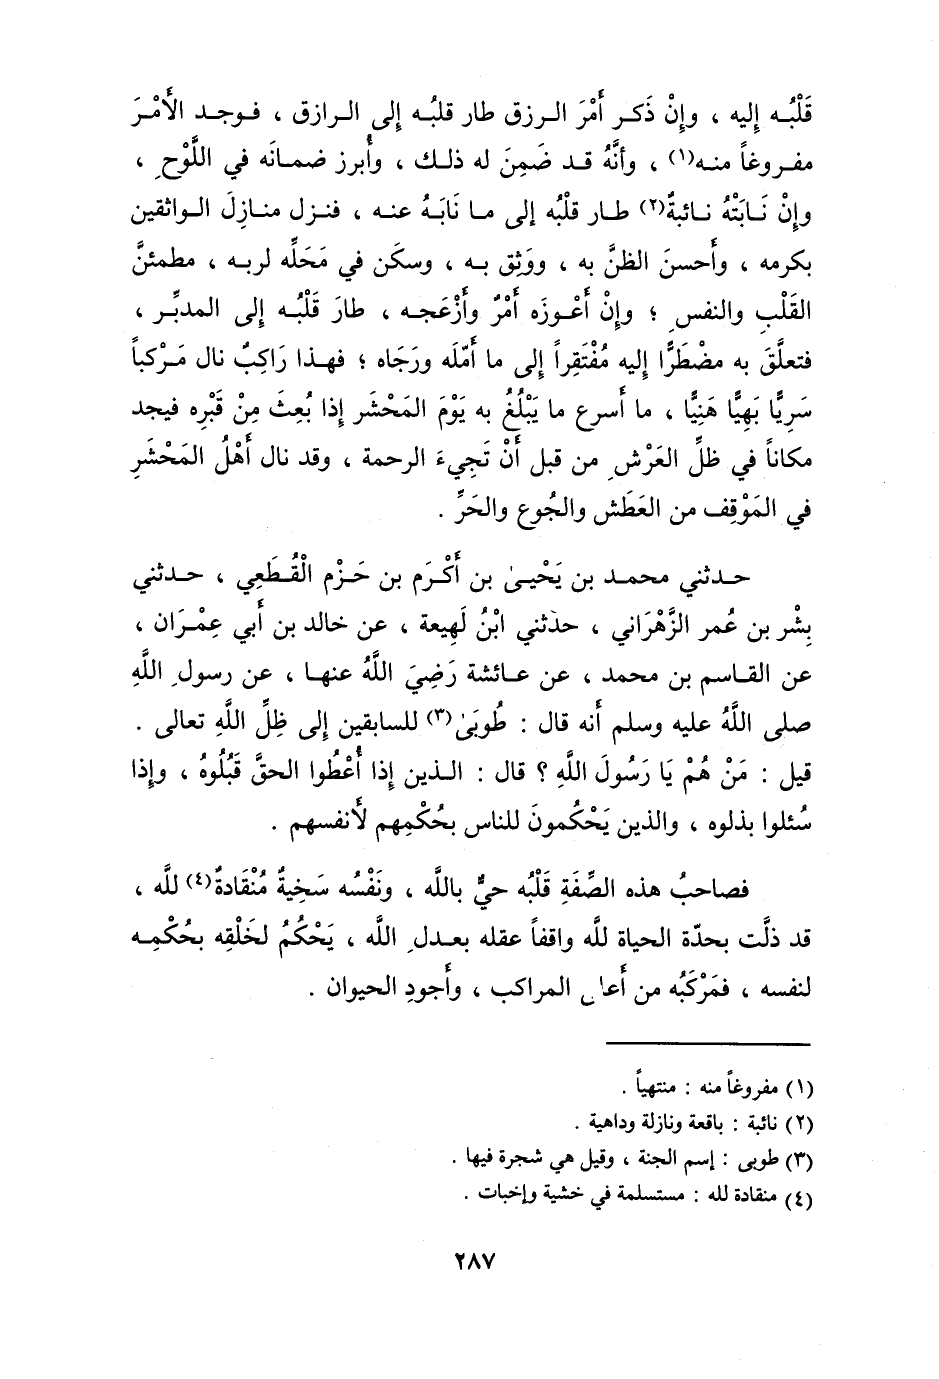 قَلْبُه إليه ، وإنْ ذَكر أَمْرَ الرزق طار قلبُه إلى الرازق ، فوجد الأَمْرَ
مفروغاً منه(١) ، وأنَّهُ قد ضَمِنَ له ذلك ، وأُبرز ضمانَه في اللَّوْحِ ،
وإنْ نَابَتْهُ نائبةٌ(٢) طار قلبُه إلى ما نَابَهُ عنه ، فنزل منازِلَ الواثقين
بكرمه ، وأَحسنَ الظنَّ به ، ووَثِق به ، وسكَن في مَحَلِّه لربه ، مطمئنَّ
القَلْبِ والنفسِ ؛ وإنْ أَعْوزَه أَمْرٌ وأَزْعَجه ، طارَ قَلْبُه إلى المدبِّر ،
فتعلَّقَ به مضْطَرًّا إليه مُفْتَقِراً إلى ما أَمّلَه ورَجَاه ؛ فهذا رَاكِبٌ نال مَرْكباً
سَرِيًّا بَهِيًّا هَنِيًّا ، ما أَسرع ما يَبْلُغُ به يَوْمَ المَحْشَر إذا بُعِثَ مِنْ قَبْرِه فيجد
مكاناً في ظلِّ العَرْشِ من قبل أَنْ تَجِيءَ الرحمة ، وقد نال أَهْلُ المَحْشَرِ
في المَوْقِف من العَطَش والجُوع والحَرِّ .
حدثني محمد بن يَحْيىٰ بن أَكْرَم بن حَزْم الْقُطَعِي ، حدثني
بِشْر بن عُمر الزَّهْرَاني ، حدّثني ابْنُ لَهِيعة ، عن خالد بن أَبي عِمْرَان ،
عن القاسم بن محمد ، عن عائشة رَضِيَ اللَّهُ عنها ، عن رسولِ اللَّهِ
صلى اللَّهُ عليه وسلم أنه قال : طُوبَىٰ(٣) للسابقين إلى ظِلِّ اللَّهِ تعالى .
قيل : مَنْ هُمْ يَا رَسُولَ اللَّهِ ؟ قال : الذين إذا أُعْطُوا الحقَّ قَبُلُوهُ ، وإذا
سُئلوا بذلوه ، والذين يَحْكُمونَ للناس بحُكْمِهم لأَنفسهم .
فصاحبُ هذه الصِّفَةِ قَلْبُه حيٌّ باللَّه ، ونَفْسُه سَخِيةٌ مُنْقَادةٌ(٤) للَّه ،
قد ذلَّت بحدّة الحياة للَّه واقفاً عقله بعدلِ اللَّه ، يَحْكُمُ لخَلْقِه بحُكْمِه
لنفسه ، فمَرْكَبُه من المراكب ، وأَجودِ الحيوان .
(١) مفروغاً منه : منتهياً .
(٢) نائبة : باقعة ونازلة وداهية .
(٣) طوبى : إسم الجنة ، وقيل هي شجرة فيها .
(٤) منقادة لله : مستسلمة في خشية وإخبات .
٢٨٧